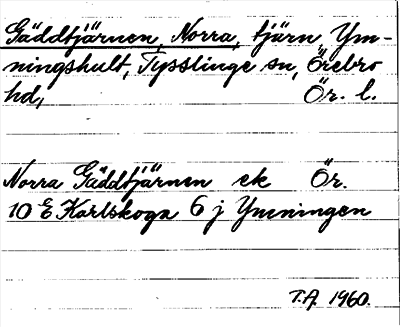 Gäddtjärnen, Norra, tjärn, Ym-
ningshult, Tysslinge sn, Örebro
hd, Ör. l.
Norra Gäddtjärnen ek Ör.
10 E Karlskoga 6 j Ymningen
T.A. 1960.